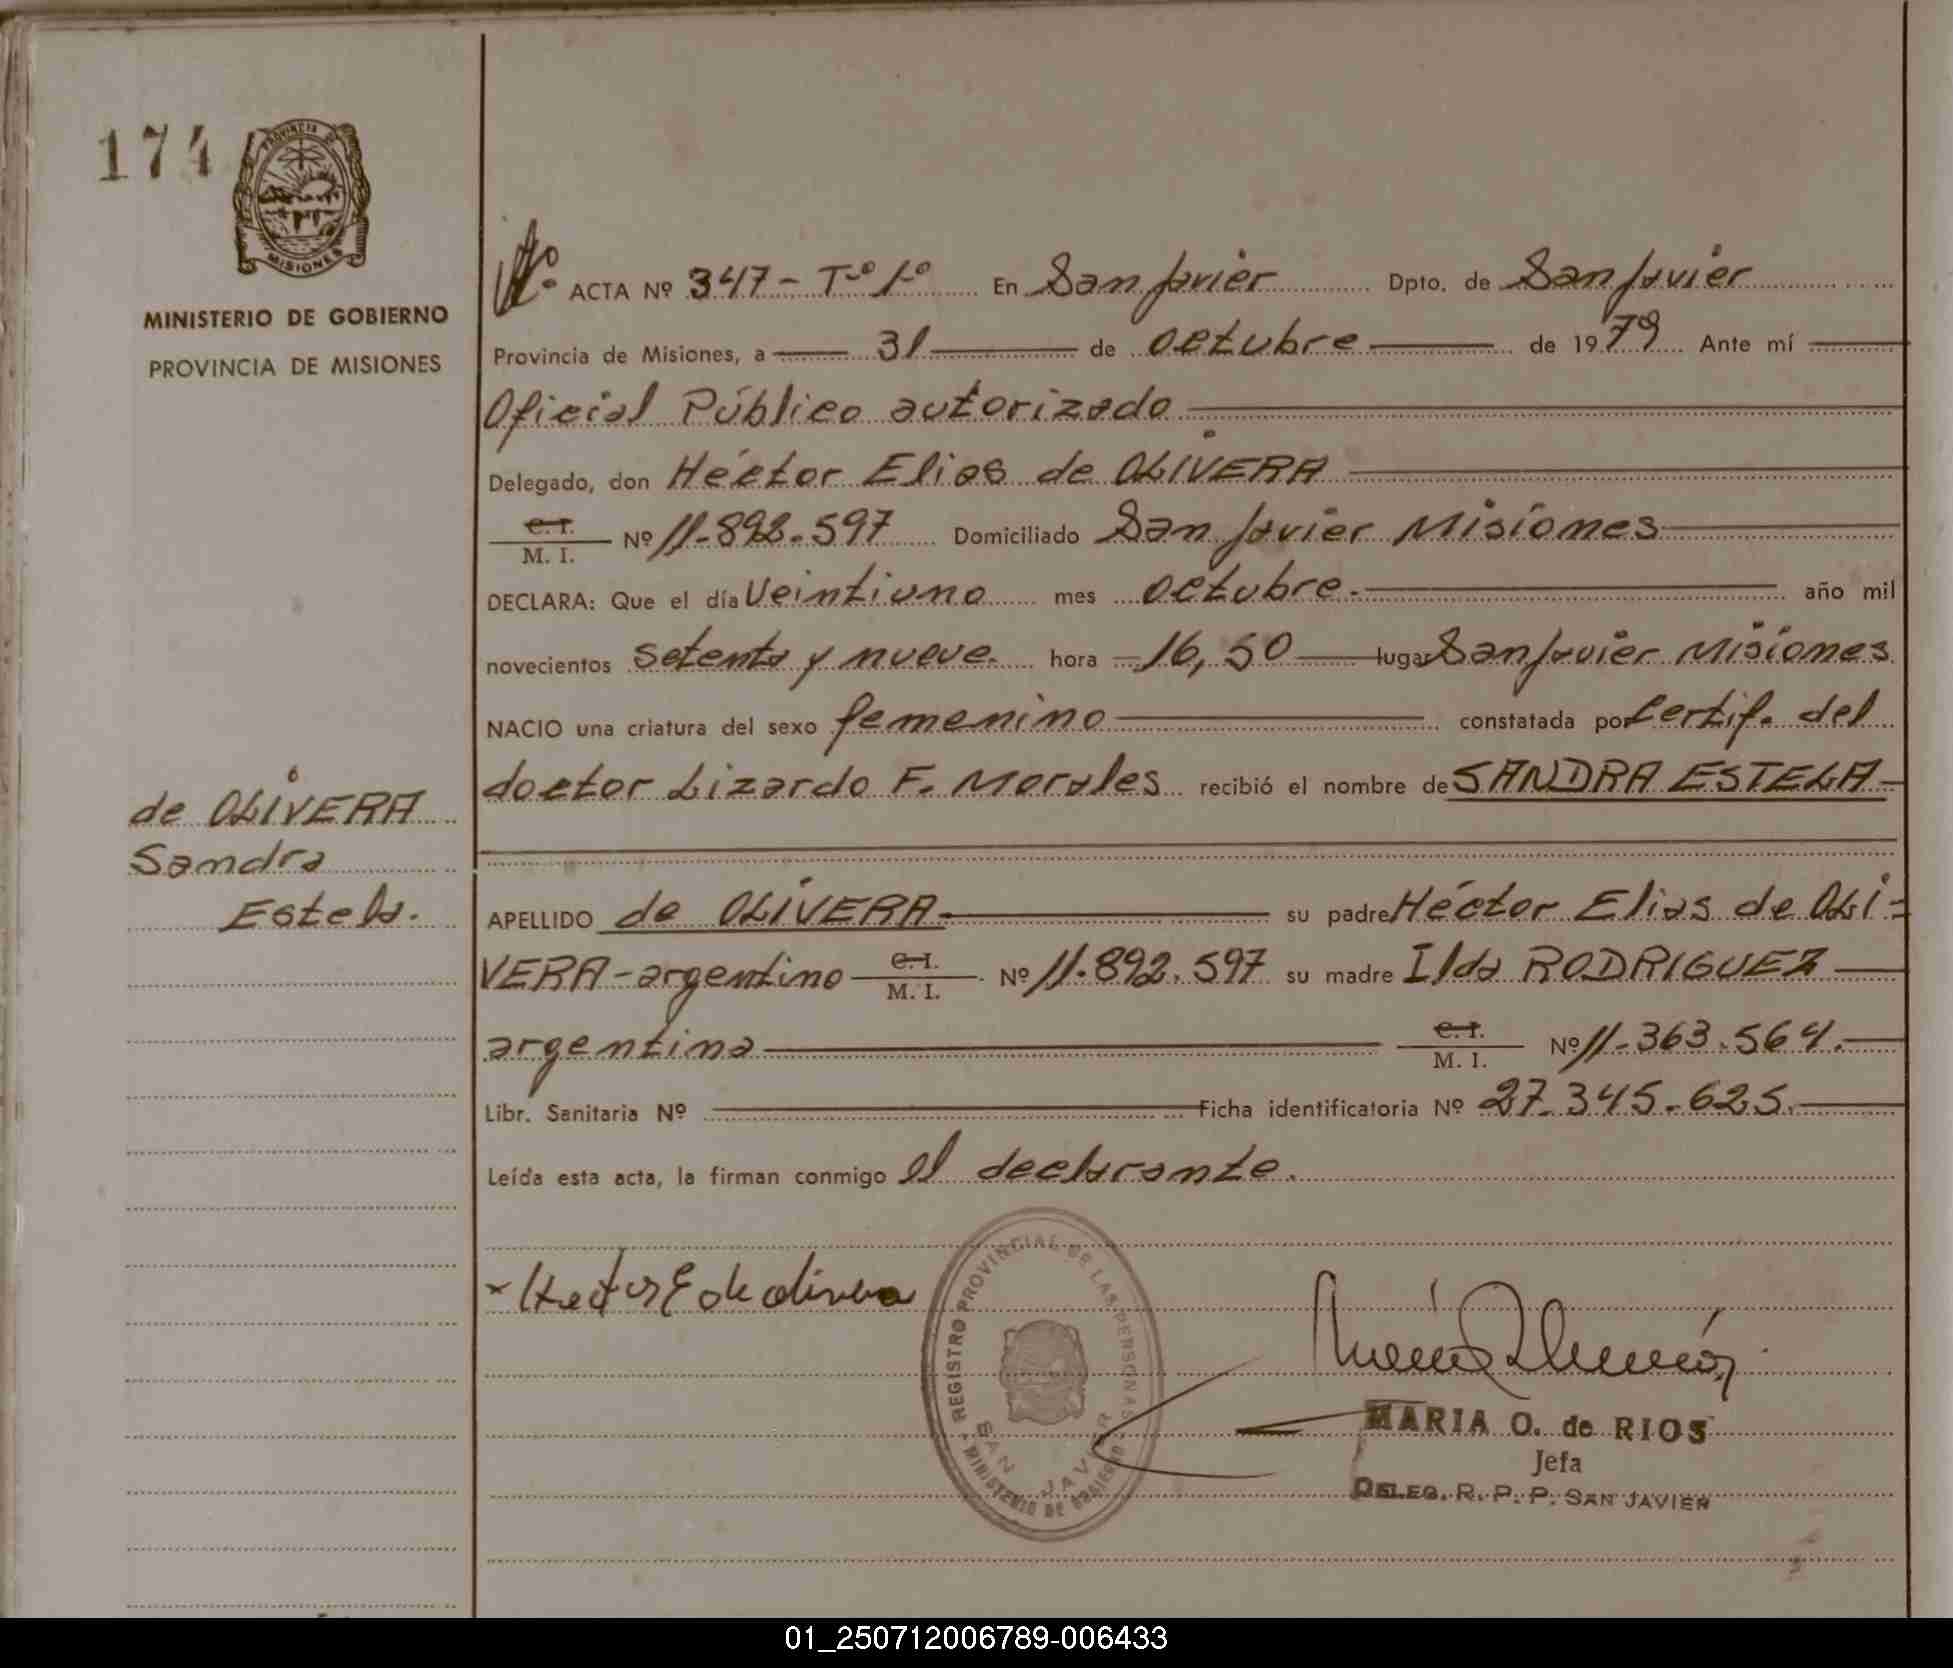 174
PROVINCIA DE
MISIONES
MINISTERIO DE GOBIERNO
PROVINCIA DE MISIONES
de OLIVERA
Sandra
Estela.
ACTA Nº 347 - Tº 1º En San Javier Dpto. de San Javier
Provincia de Misiones, a 31 de octubre de 1979 Ante mí
Oficial Público autorizado
Delegado, don Héctor Elias de OLIVERA
C. I.
M. I. Nº 11.892.597 Domiciliado San Javier Misiones
DECLARA: Que el día Veintiuno mes octubre. año mil
novecientos setenta y nueve. hora 16,50 lugar San Javier Misiones
NACIO una criatura del sexo femenino constatada por Certif. del
doctor Lizardo F. Morales recibió el nombre de SANDRA ESTELA
APELLIDO de OLIVERA su padre Héctor Elias de OLI=
VERA - argentino C. I.
M. I. Nº 11.892.597 su madre Ilda RODRIGUEZ
argentina C. I.
M. I. Nº 11.363.564.
Libr. Sanitaria Nº Ficha identificatoria Nº 27.345.625.
Leída esta acta, la firman conmigo el declarante.
Hector E de olivera
REGISTRO PROVINCIAL DE LAS PERSONAS
SAN JAVIER
MINISTERIO DE GOBIERNO
MARIA O. de RIOS
Jefa
DELEG. R. P. P. SAN JAVIER
01_250712006789-006433